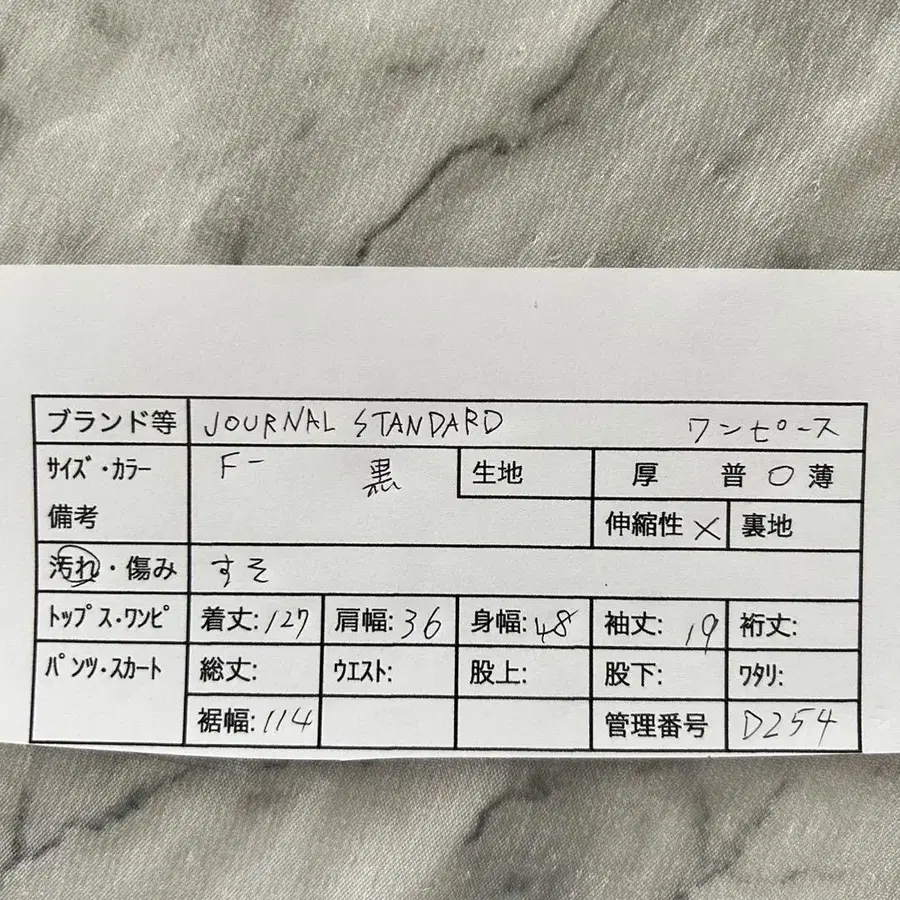 ブランド等 JOURNAL STANDARD ワンピース
サイズ・カラー F- 黒 生地 厚 普 〇 薄
備考 伸縮性 × 裏地
汚れ・傷み すそ
トップス・ワンピ 着丈:127 肩幅:36 身幅:48 袖丈:19 裄丈:
パンツ・スカート 総丈: ウエスト: 股上: 股下: ワタリ:
裾幅:114 管理番号 D254